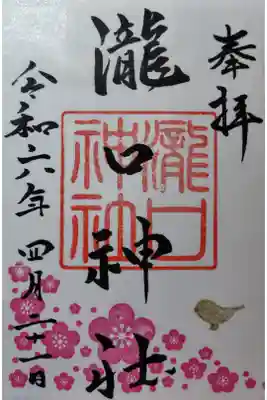 奉拝
瀧口神社
瀧口神社
令和六年 四月二十一日